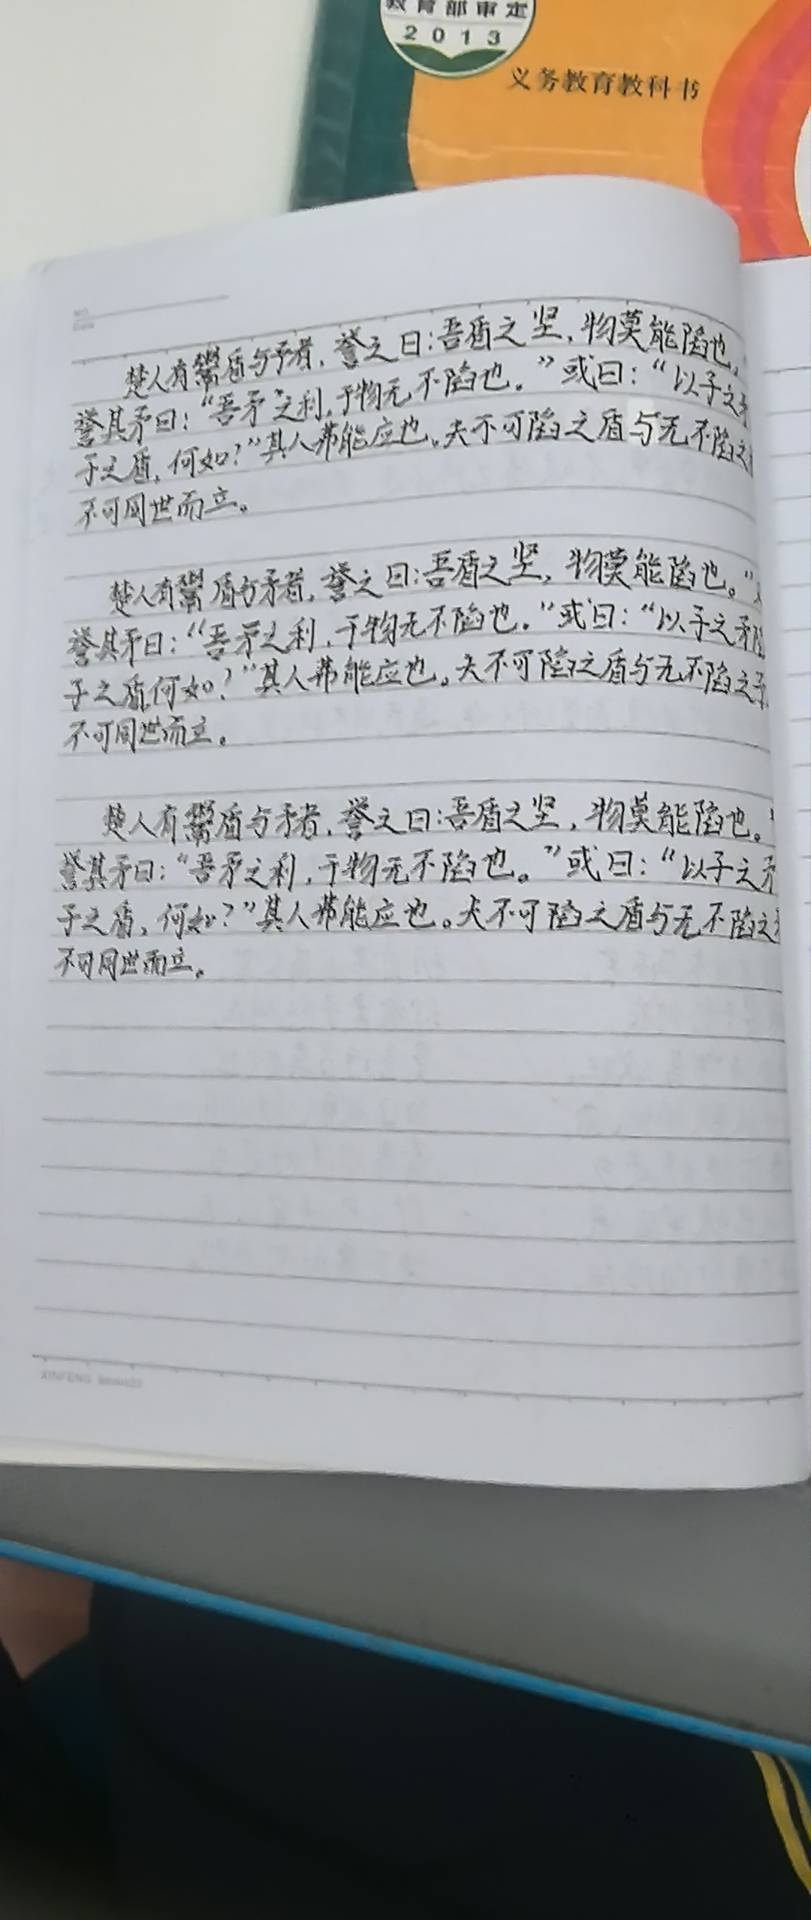 教育部审定
2013
义务教育教科书
楚人有鬻盾与矛者，誉之曰：吾盾之坚，物莫能陷也。
誉其矛曰：“吾矛之利，于物无不陷也。”或曰：“以子之矛
子之盾，何如？”其人弗能应也。夫不可陷之盾与无不陷之
不可同世而立。
楚人有鬻盾与矛者，誉之曰：吾盾之坚，物莫能陷也。”
誉其矛曰：“吾矛之利，于物无不陷也。”或曰：“以子之矛陷
子之盾何如？”其人弗能应也。夫不可陷之盾与无不陷之矛
不可同世而立。
楚人有鬻盾与矛者，誉之曰：吾盾之坚，物莫能陷也。”
誉其矛曰：“吾矛之利，于物无不陷也。”或曰：“以子之矛
子之盾，何如？”其人弗能应也。夫不可陷之盾与无不陷之
不可同世而立。
XINFENG